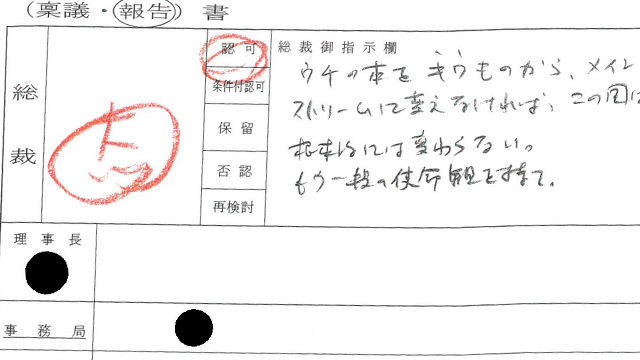 (稟議・報告)書
総裁
認可
条件付認可
保留
否認
再検討
総裁御指示欄
ウチの本をキワものから、メイン
ストリームに変えなければ、この国は
根本的には変わらない。
もう一段の使命観を持て。
理事長
事務局